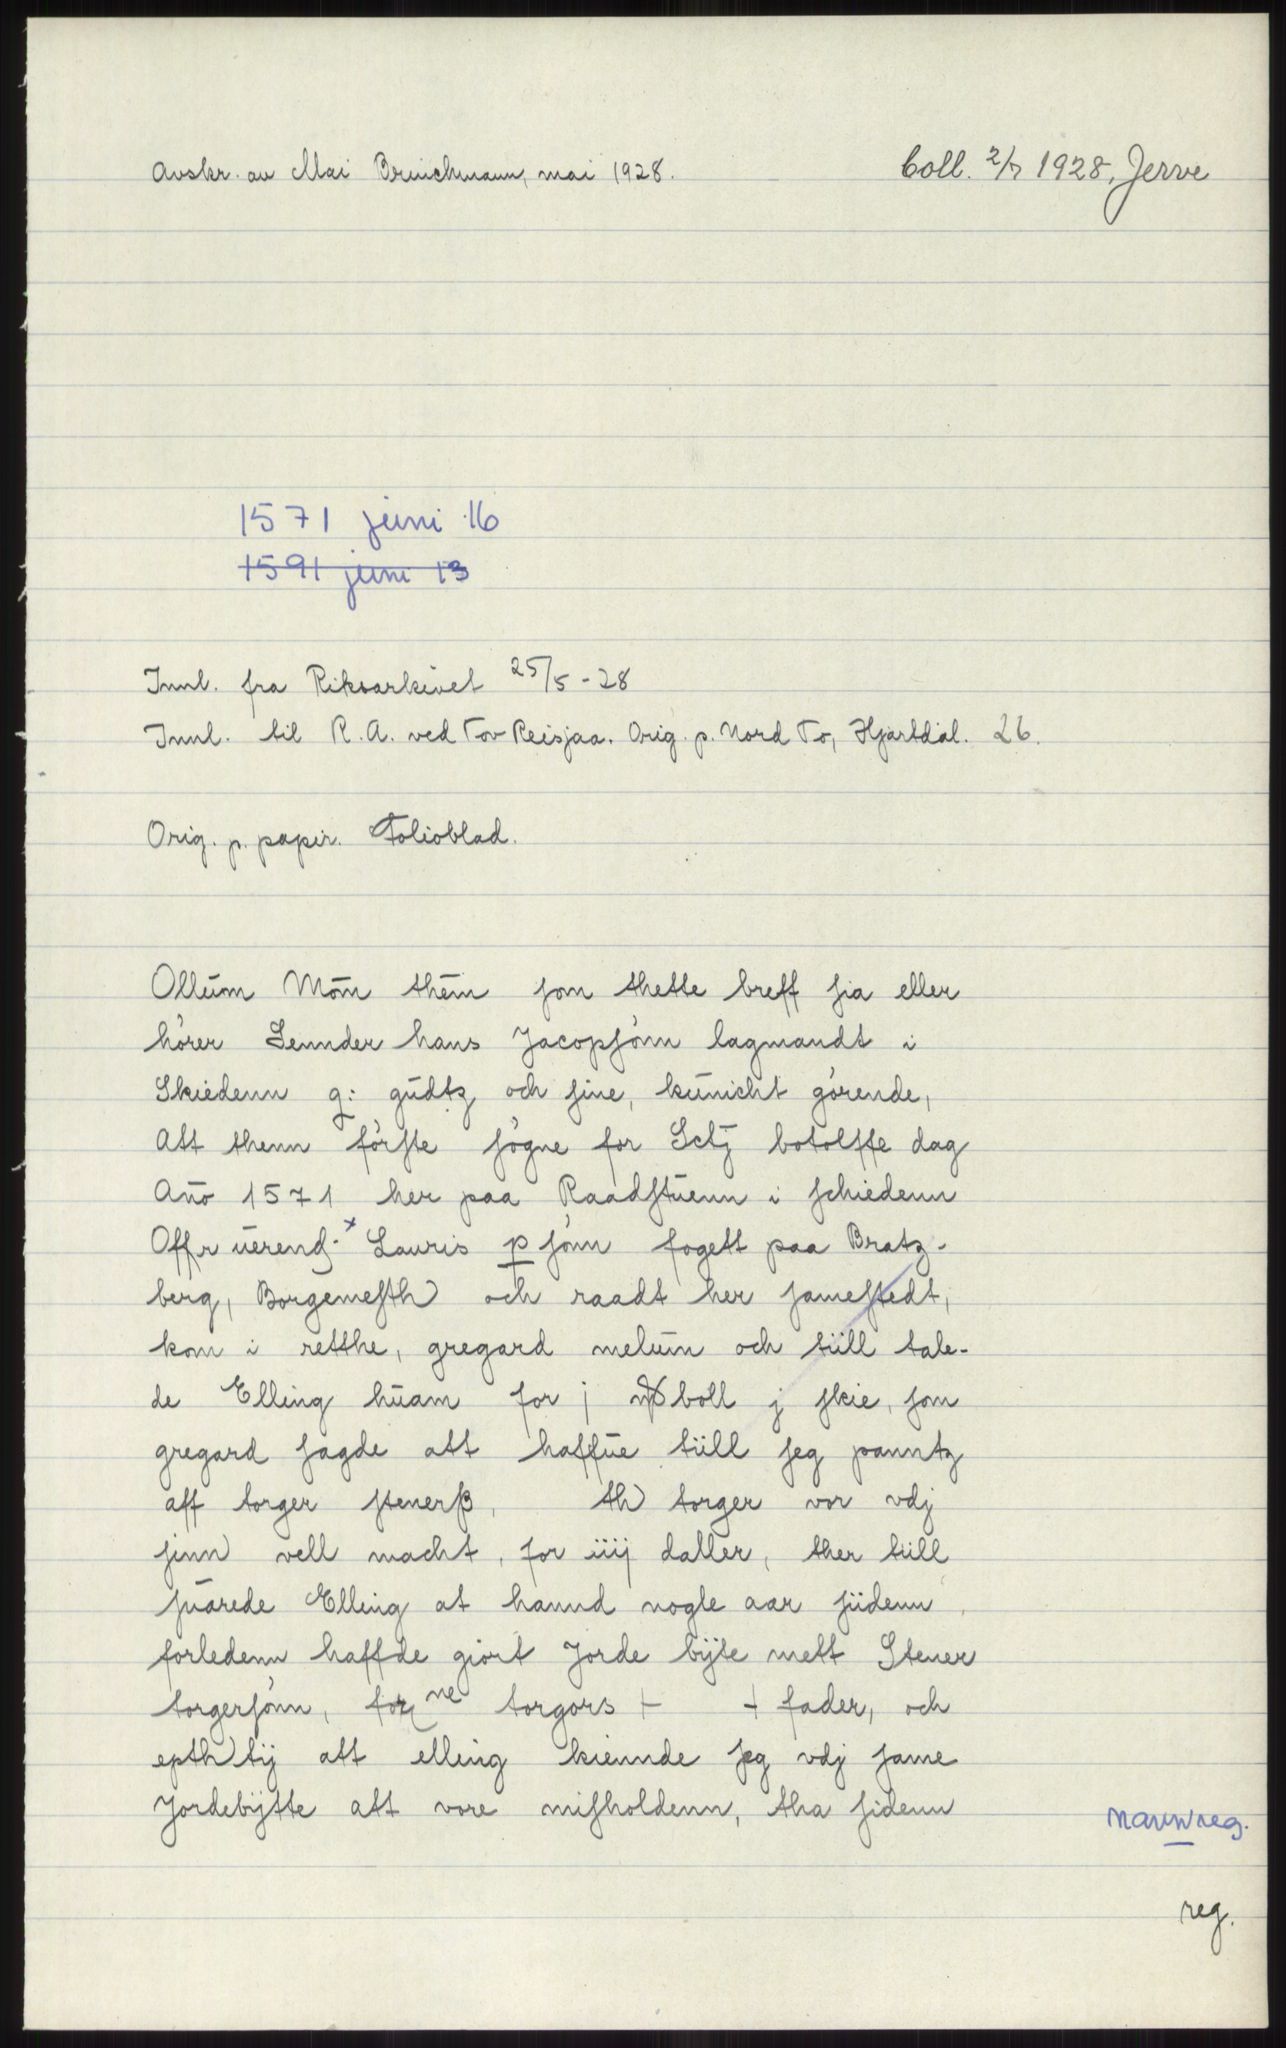 Avskr. av Mai Breuichmann, mai 1928.
Coll. 2/7 1928, Jerve
1571 juni 16
1591 juni 13
Innl. fra Riksarkivet 25/5 - 28
Innl. til R. A. ved Tov Reisjaa. Orig. p. Nord To, Hjartdal. 26.
Orig. p. papir. Folioblad.
Ollūm Mōm thēm som thette breff sia eller
hörer Sennder hans Jacopsönn lagmandt i
Skiedenn g: gūdtz och sine, kūnicht görende,
Att thenn förste sögne for Sctj botolffe dag
Año 1571 her paa Raadstūenn i schiedenn
Offr ūerend. x Lauris p sönn fogett paa Bratz-
berg, Borgemesth och raadt her samestedt,
kom i retthe, gregard melūm och tiill tale-
de Elling hūam for j boll j skie, som
gregard sagde att haffūe tiill seg panntz
aff torger stenerß, th torger vor vdj
sinn vell macht, for iiij daller, ther tiill
sūarede Elling at hannd nogle aar siidenn
forledenn haffde giort Jorde býte mett Stener
torgersönn, forne torgors + + fader, och
epth tij att elling kiennde seg vdj same
Jordebýtte att vore misholdenn, tha sidenn
navnreg.
reg.